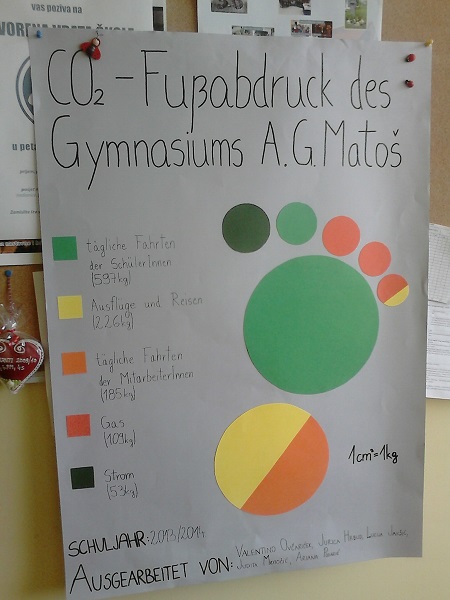 vas poziva na
CO₂ - Fußabdruck des
Gymnasiums A.G. Matoš
u peta
tägliche Fahrten
der SchülerInnen
(597kg)
Ausflüge und Reisen
(226kg)
tägliche Fahrten
der MitarbeiterInnen
(185kg)
Gas
(109kg)
Strom
(53kg)
1cm²=1kg
SCHULJAHR: 2013/2014
AUSGEARBEITET VON: Valentino